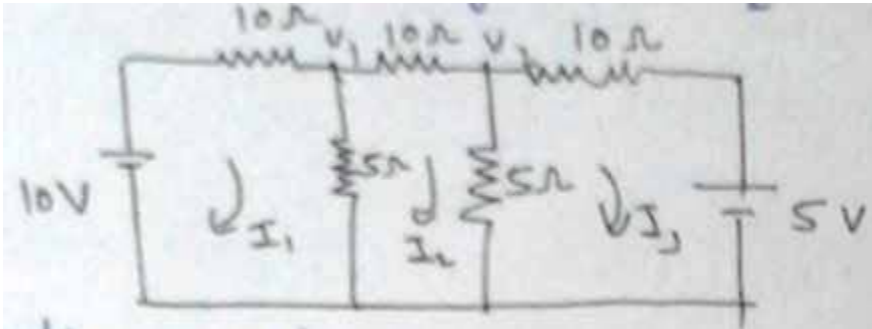 10Ω V₁ 10Ω V₂ 10Ω
10V I₁ 5Ω I₂ 5Ω I₃ 5V